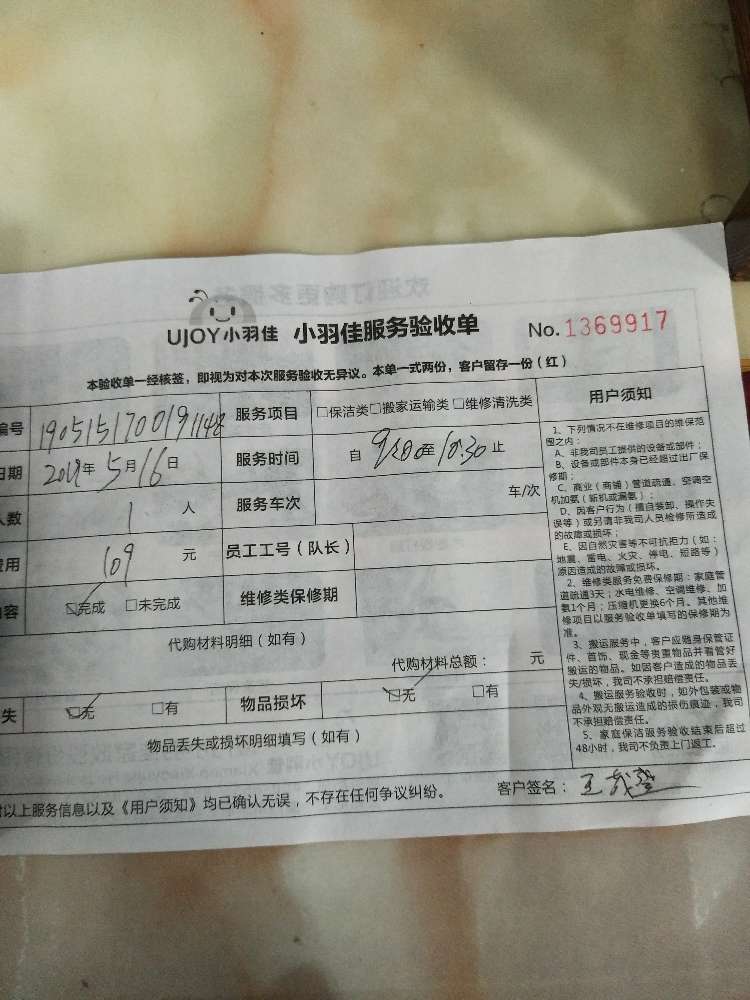 UJOY小羽佳 小羽佳服务验收单 No.1369917
本验收单一经核签，即视为对本次服务验收无异议。本单一式两份，客户留存一份（红）
编号 1905151700191148 服务项目 □保洁类□搬家运输类□维修清洗类
日期 2019年5月16日 服务时间 自 至10:30止
人数 1 人 服务车次 车/次
费用 109 元 员工工号（队长）
内容 ☑完成 □未完成 维修类保修期
代购材料明细（如有）
代购材料总额： 元
失 ☑无 □有 物品损坏 ☑无 □有
物品丢失或损坏明细填写（如有）
以上服务信息以及《用户须知》均已确认无误，不存在任何争议纠纷。 客户签名：
用户须知
1、下列情况不在维修项目的维保范
围之内：
A、非我司员工提供的设备或部件；
B、设备或部件本身已经超过出厂保
修期；
C、商业（商铺）管道疏通、空调空
机加氨（新机或漏氨）；
D、因客户行为（擅自装卸、操作失
误等）或另请非我司人员检修所造成
的故障或损坏；
E、因自然灾害等不可抗拒力（如：
地震、雷电、火灾、停电、短路等）
原因造成的故障或损坏。
2、维修类服务免费保修期：家庭管
道疏通3天；水电维修、空调维修、加
氨1个月；压缩机更换6个月。其他维
修项目以服务验收单填写的保修期为
准。
3、搬运服务中，客户应随身保管证
件、首饰、现金等贵重物品并看管好
搬运的物品。如因客户造成的物品丢
失/损坏，我司不承担赔偿责任。
4、搬运服务验收时，如外包装或物
品外观无搬运造成的损伤痕迹，我司
不承担赔偿责任。
5、家庭保洁服务验收结束后超过
48小时，我司不负责上门返工。